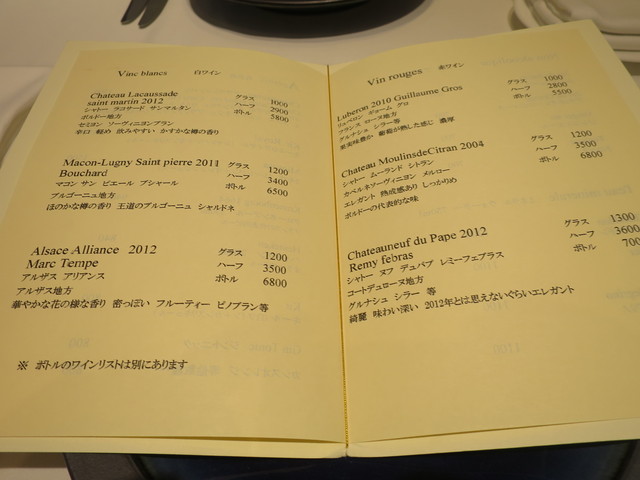 Vinc blancs 白ワイン
Chateau Lacaussade
saint martin 2012
シャトー ラコサード サンマルタン
ボルドー地方
セミヨン ソーヴィニヨンブラン
辛口 軽め 飲みやすい かすかな樽の香り
グラス 1000
ハーフ 2900
ボトル 5800
Macon-Lugny Saint pierre 2011
Bouchard
マコン サン ピエール ブシャール
ブルゴーニュ地方
ほのかな樽の香り 王道のブルゴーニュ シャルドネ
グラス 1200
ハーフ 3400
ボトル 6500
Alsace Alliance 2012
Marc Tempe
アルザス アリアンス
アルザス地方
華やかな花の様な香り 蜜っぽい フルーティー ピノブラン等
グラス 1200
ハーフ 3500
ボトル 6800
※ ボトルのワインリストは別にあります
Vin rouges 赤ワイン
Luberon 2010 Guillaume Gros
リュベロン ギョーム グロ
フランス ローヌ地方
グルナシュ シラー等
果実味豊か 葡萄が熟した感じ 濃厚
グラス 1000
ハーフ 2800
ボトル 5500
Chateau MoulinsdeCitran 2004
シャトー ムーランド シトラン
カベルネソーヴィニヨン メルロー
エレガント 熟成感あり しっかりめ
ボルドーの代表的な味
グラス 1200
ハーフ 3500
ボトル 6800
Chateauneuf du Pape 2012
Remy febras
シャトー ヌフ デュパプ レミーフェブラス
コートデュローヌ地方
グルナシュ シラー 等
綺麗 味わい深い 2012年とは思えないぐらいエレガント
グラス 1300
ハーフ 3600
ボトル 700